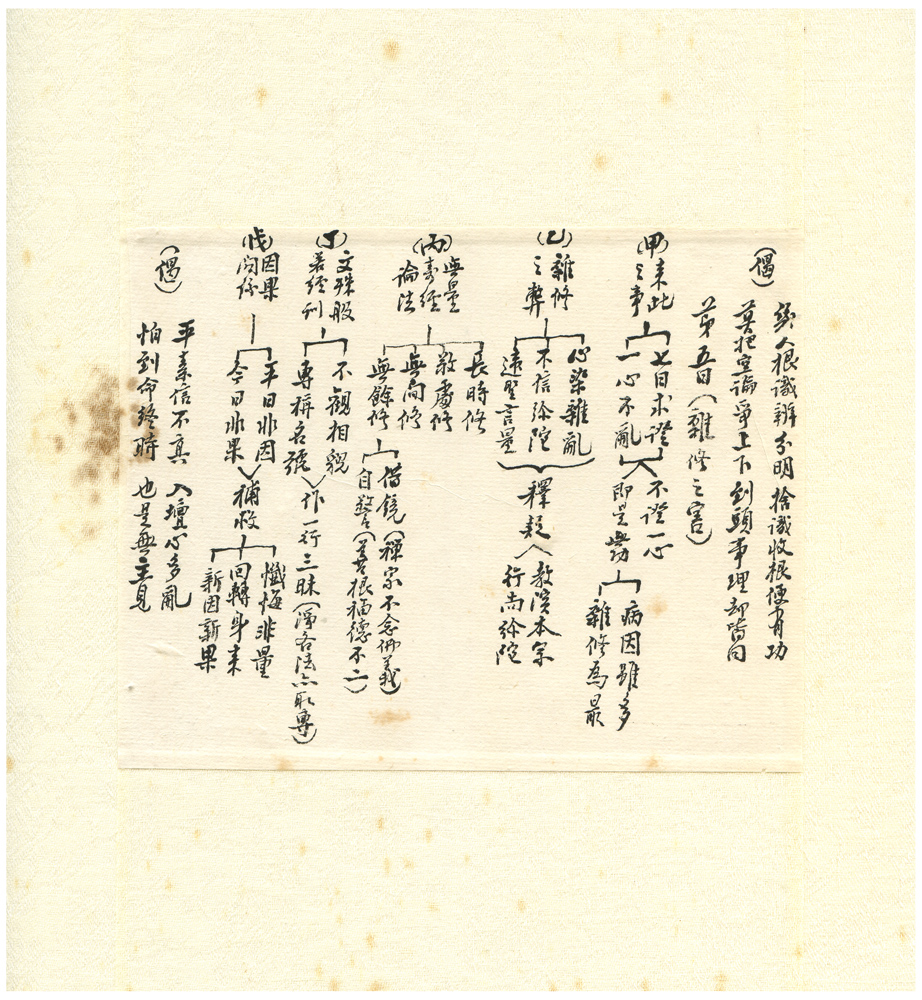 (偈)
幾人根識辨分明捨識收根便有功
莫把空論爭上下到頭事理却皆同
第五日(雜修之害)
(甲)來此之事
七日求證
一心不亂
不證一心
即是無功
病因雖多
雜修為最
(乙)雜修之弊
心染雜亂
不信彌陀
遠聖言量
釋疑
教演本宗
行尚彌陀
(丙)無量壽經論法
長時修
敬處修
無間修
無餘修
借鏡(禪宗不念佛義)
自警(善根福德不二)
(丁)文殊般若經列
不觀相貌
專稱名號
作一行三昧(淨各法亦取專)
(戊)因果關係
平日非因
今日非果
補救
懺悔非量
回轉身來
新因新果
(偈)
平素信不真 入壇心多亂
怕到命終時 也是無主見